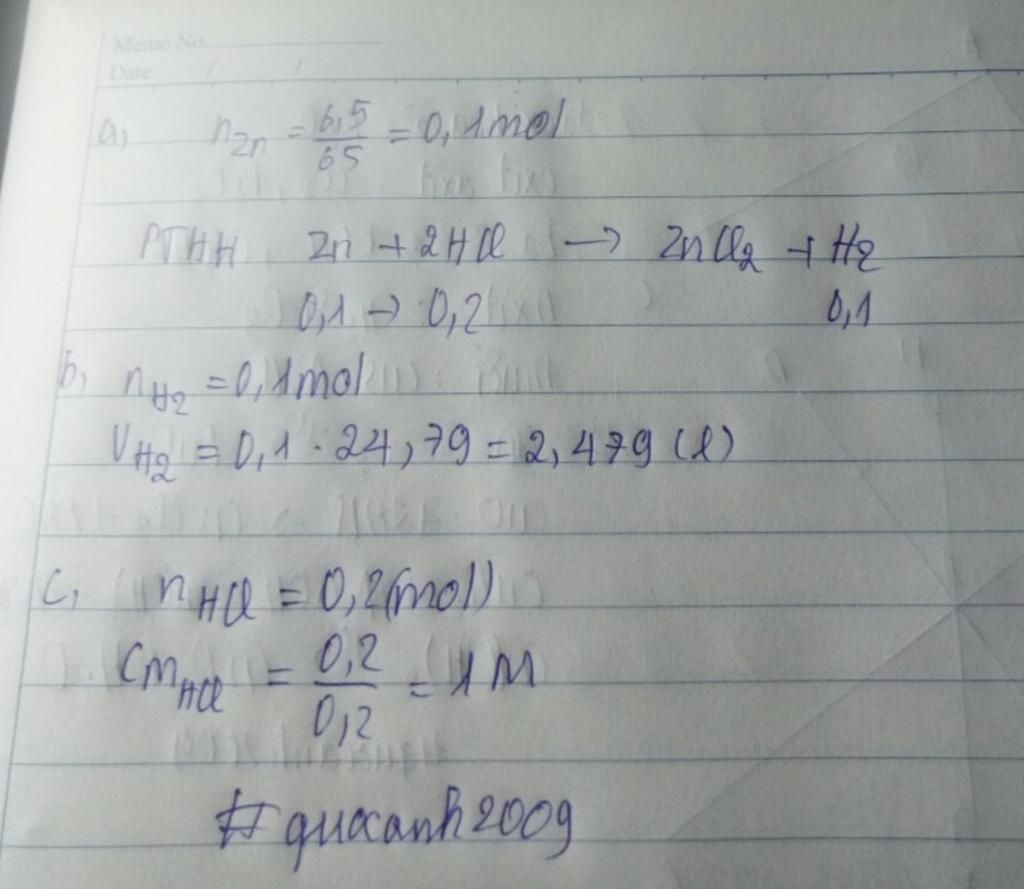 Memo No.
Date / /
a, n_Zn = 6,5/65 = 0,1mol
PTHH Zn + 2HCl → ZnCl₂ + H₂
0,1 → 0,2 0,1
b, n_H₂ = 0,1mol
V_H₂ = 0,1 . 24,79 = 2,479 (l)
c, n_HCl = 0,2(mol)
CM_HCl = 0,2/0,2 = 1M
#quocanh2009